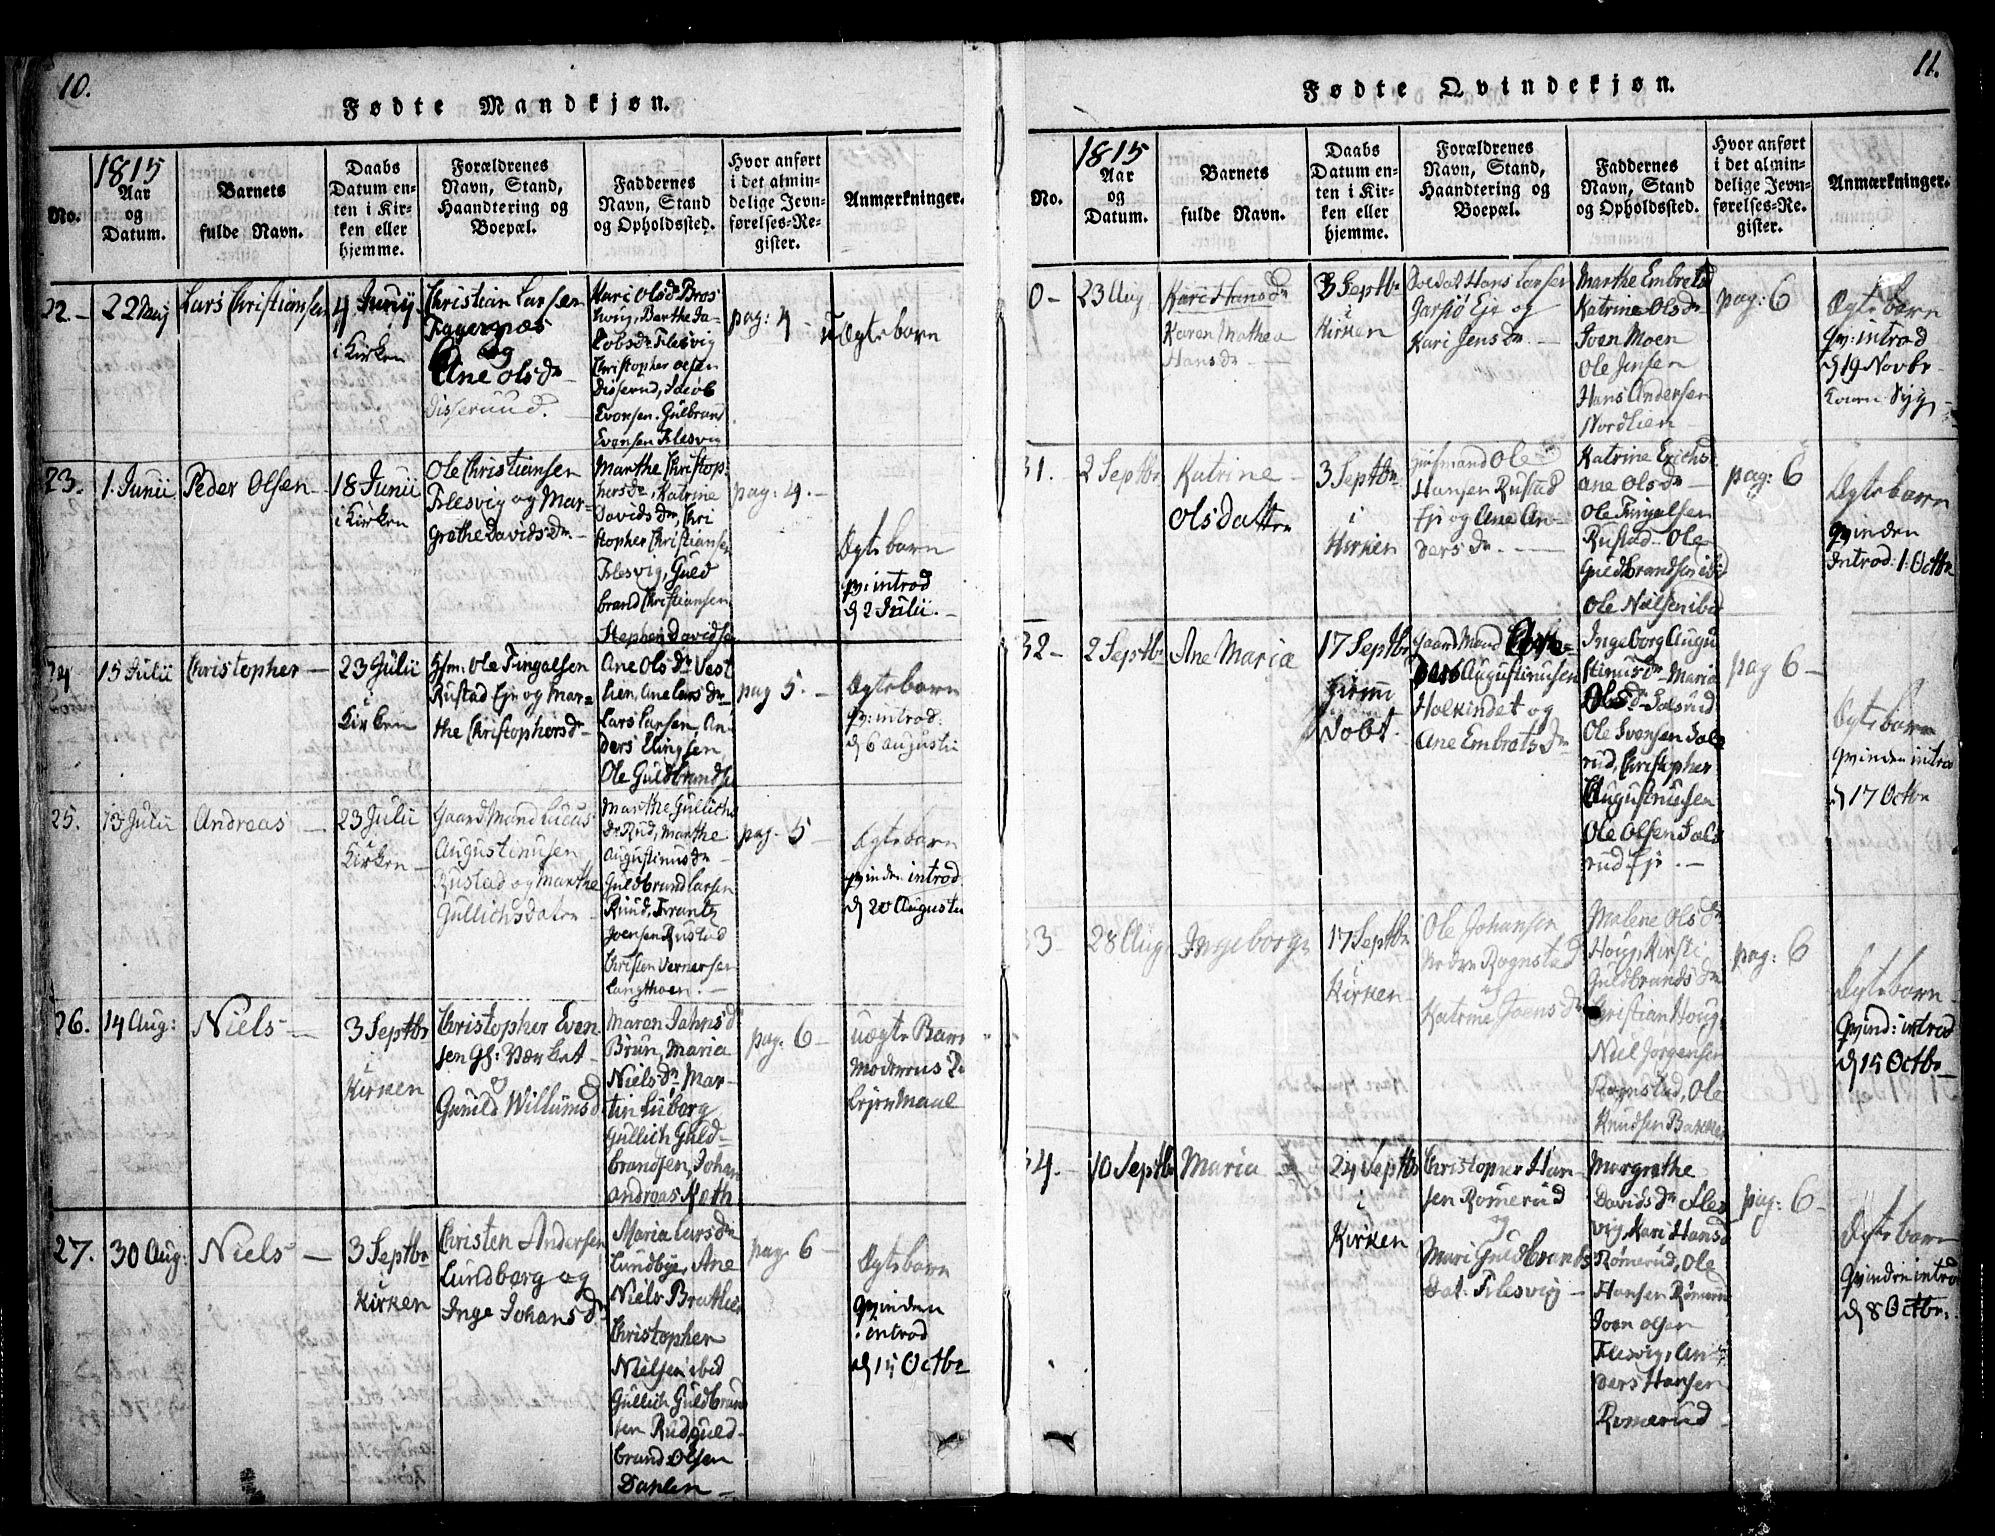 10.
Fødte Mandkjøn.
No.
1815
Aar
og
Datum.
Barnets
fulde Navn.
Daabs
Datum en-
ten i Kir-
ken eller
hjemme.
Forældrenes
Navn, Stand,
Haandtering og
Boepæl.
Faddernes
Navn, Stand
og Opholdssted.
Hvor anført
i det almin-
delige Jevn-
førelses-Re-
gister.
Anmærkninger.
22. -
22 Maij
Lars Christiansen
4 Junij
i Kirken
Christian Larsen
Fagernæs
og
Ane Olsdr
Disserud.
Kari Olsdr Bros
Berthe Ja-
cobsdr Flesvig
Christopher Olsen
Disserud, Jacob
Evensen. Gulbrand
Evensen Flesvig
pag: 4
Uægtebarn
23.
1. Junii
Peder Olsen
18 Junii
i Kirken
Ole Christiansen
Flesvig og Mar-
grethe Davidsdr
Marthe Christop-
hersdr, Katrine
Davidsdr, Chri
stopher Christiansen
Flesvig, Guld
brand Christiansen
Stephen Davidsen
pag: 4. -
Ægtebarn
qv: introd
d 2 Julii. -
24
15 Julii
Christopher
23 Julii
i
Kirken
H/m: Ole Fingalsen
Rustad Eje og Mar-
the Christophersdr
Ane Olsdr Vest
lien, Ane Larsdr
Lars Larsen, An-
ders Elingsen
Ole Guldbrandse
pag 5. -
Ægtebarn
qv: introd:
d 6 Augustii
25.
13 Julii
Andreas
23 Julii
i
Kirken
Gaard Mand Lucas
Augustinusen
Rustad og Marthe
Gullichsdater
Marthe Gullichs
dr Rud, Marthe
Augustinusdr
Guldbrand Larsen
Ruud, Frantz
Joensen Rustad
Christen Vernersen
Langthoen. -
pag. 5
Ægtebarn
qvinden introd
d 20 Augustii
26.
14 Aug:
Niels
3 Septbr
i
Kirken
Christopher Even-
sen Gl: Værket
og
Gunild Willumsd
Maren Jahnsdr
Brun, Maria
Nielsdr Mar-
tin Luborg
Gullich Guld-
brandsen, Johan
Andreas Roth
pag: 6 -
uægte Barn
Moderens 2
Lejermaal
27.
30 Aug:
Niels
3 Septbr
i
Kirken
Christen Andersen
Lundborg og
Inge Johansdr
Maria Larsdr
Lundbye, Ane
Niels Brathen
Christopher
Nielsen ibid
Gullich Guldbrand
sen Rud, Guld-
brand Olsen
Dahlen -
pag: 6 -
Ægtebarn
Qvinden
introd
d 15 Octbr
11.
Fødte Qvindekjøn.
No.
1815
Aar
og
Datum.
Barnets
fulde Navn.
Daabs
Datum en-
ten i Kir-
ken eller
hjemme.
Forældrenes
Navn, Stand,
Haandtering og
Boepæl.
Faddernes
Navn, Stand
og Opholdssted.
Hvor anført
i det almin-
delige Jevn-
førelses-Re-
gister.
Anmærkninger.
0 -
23 Aug
Kari Hansdr
Karen Mathea
Hansdr
3 Septbr
i
Kirken
Soldat Hans Larsen
Garsiö Eje og
Kari Jensdr. -
Marthe Embretsd
Katrine Olsdr
Joen Moen
Ole Jensen
Hans Andersen
Nordlien
pag: 6
Ægtebarn
Qv: introd
d 19 Novbr
31.
2 Septbr
Katrine
Olsdatter
3 Septbr
i
Kirken
Huusmand Ole
Hansen Rustad
Eje og Ane An-
dersdr -
Katrine Erichsd
Ane Olsdr
Ole Fingalsen
Rustad Ole
Guldbrandsen ibid
Ole Nielsen ibid
pag: 6
Ægtebarn
qvinden
Introd: 1. Octbr
32 -
2 Septbr
Ane Maria
17 Septbr
hjemme
Døbt.
Gaard Mand An-
ders Augustinusen
Holkindet og
Ane Embretsdr
Ingeborg Augu
stinusdr Maria
Olsdr Solsrud
Ole Svensen Sols
rud, Christopher
Augustinusen
Ole Olsen Sols
rud Eje. -
pag 6 -
Ægtebarn
qvinden introd
d 17 Octbr
33 -
28 Aug
Ingeborg
17 Septbr
i
Kirken
Ole Johansen
Rognstad
og
Katrine Joensdr
Malene Olsdr
Houg, Kirsti
Guldbrandsdr
Christian Houg
Niel Jorgensen
Rognstad, Ole
Knudsen Bakke
pag: 6
Ægtebarn
Qvind: introd
d 15 Octbr
34. -
10 Septbr
Maria
24 Septbr
i
Kirken
Christopher Han
sen Romerud
og
Mari Guldbrands
dat. Flesvig -
Margrethe
Davidsdr Fles
vig, Kari Hansd
Rømerud, Ole
Hansen Rømerud
Joen Olsen
Flesvig, An-
ders Hansen
Romerud -
pag: 6 -
Ægtebarn
Qvinden introd
d 8 Octbr.